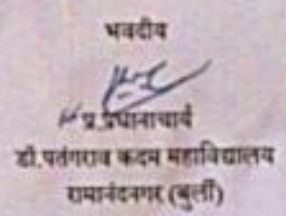 भवदीय
प्र.प्रधानाचार्य
डॉ.पतंगराव कदम महाविद्यालय
रामानंदनगर (बुर्ली)